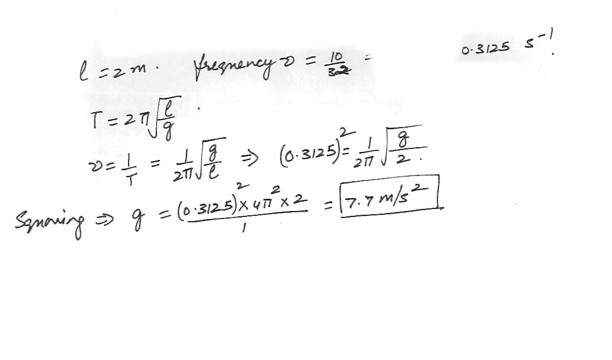 l = 2 m. frequency ν = 10/32 = 0.3125 s⁻¹.
T = 2π√(l/g).
ν = 1/T = 1/2π √(g/l) ⇒ (0.3125)² = 1/2π √(g/2).
Squaring ⇒ g = (0.3125)² × 4π² × 2 / 1 = 7.7 m/s²